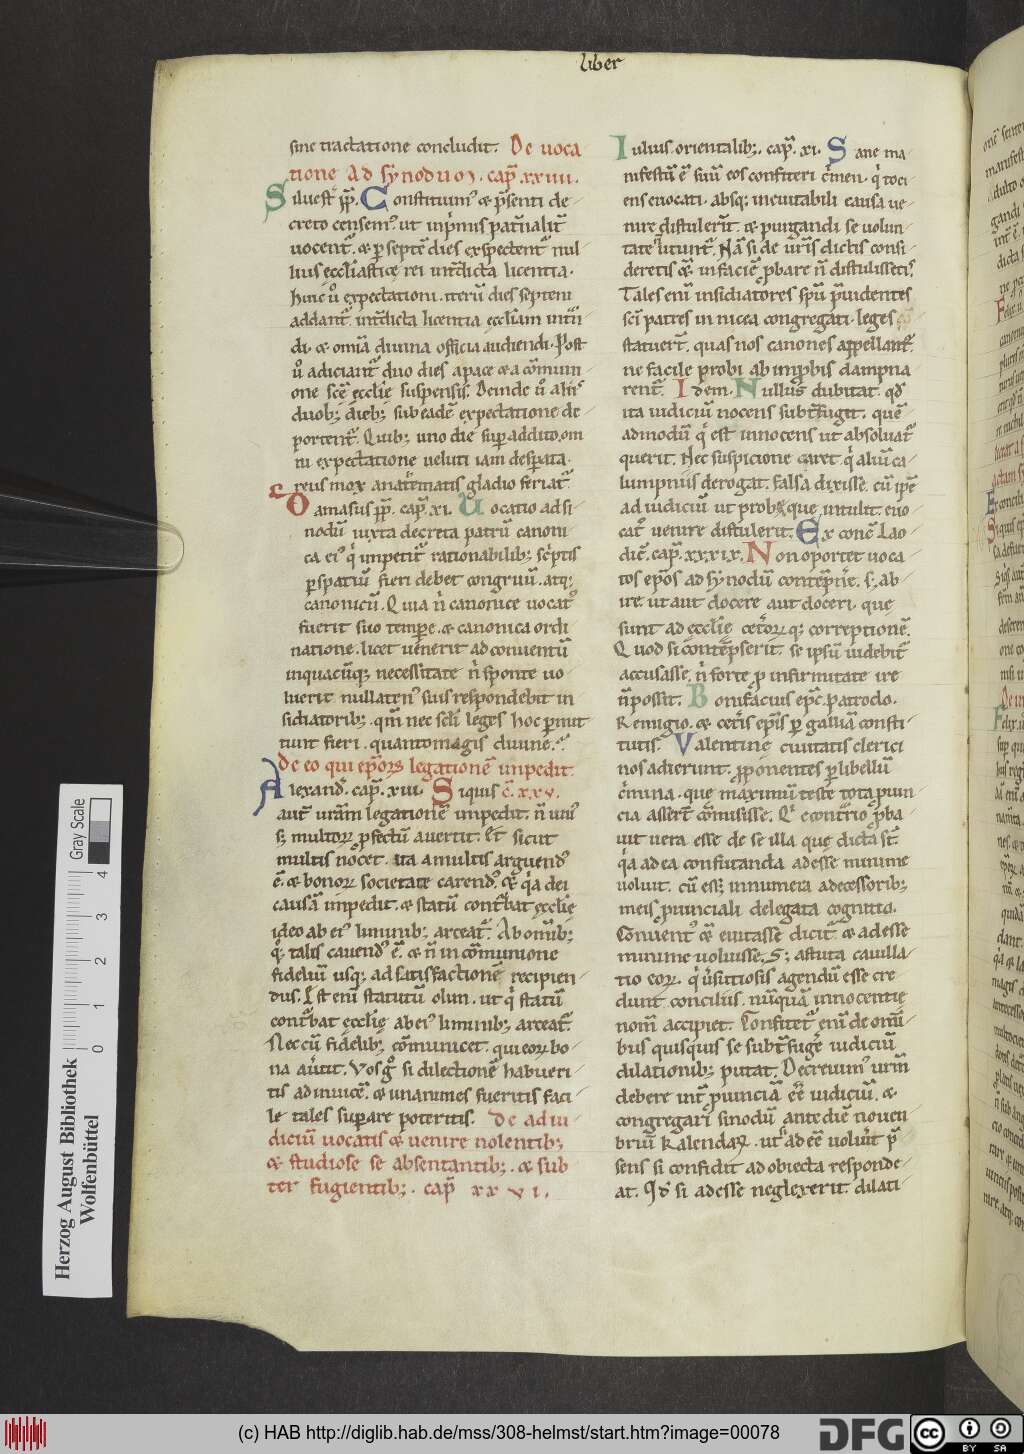 liber
sine tractatione concludit. De uoca
tione ad synodum. cap̄. xxiiii.
Siluest̄ pp̄. Constitutium᷒ & p̄senti de
creto censem᷒. ut inp̄mis pat̄ualit̄
uocent᷒. & p̄ septē dies exspectent᷒ nul
lius ecclīasticę rei int̄dicta licentia.
huic u̓ expectationi. iterū dies septem
addant᷒. int̄dicta licentia ecclīam int̄n
di. & omīa diuina officia audiendi. Post
u̓ adiciant᷒ duo dies a pace & a cōmuni
one sc̄ę ecclīę suspensis. Deinde u̓ aliis
duob; dieb; sub eadē expectatione de
portent᷒. Quib; uno die sup̄ addito. om
ni expectatione ueluti iam desp̄ata.
reus mox anatematis gladio feriat᷒.
Damasus pp̄. cap̄. xi. Uocatio ad si
nodū iuxta decreta patrū canoni
ca ei᷒ q̇ impetit᷒ rationabilib; sc̓ptis
p̄ spatiū fieri debet congruū. atq;
canonicū. Quia n̓ canonice uocat᷒
fuerit suo temp̄e. & canonica ordi
natione. licet uenerit ad conuentū
inquacūq; necessitate n̓ sponte uo
luerit nullaten᷒ suis respondebit in
sidiatorib;. qm̄ nec sc̄li leges hoc p̄mit
tunt fieri. quanto magis diuine.
De eo qui ep̄orꝝ legationē impedit.
Alexand᷒. cap̄. xiii. Siquis c̄. xxv.
aut̄ uram̄ legationē impedit. n̄ uni᷒
s; multorꝝ p̄fectū auertit. Et sicut
multis nocet. ita a multis arguend᷒
ē. & bonorꝝ societate carend᷒. & q̇a dei
causā impedit. & statū cont᷒bat ecclīę
ideo ab ei᷒ liminib; arceat᷒. Ab omīb;
q̇. talis cauend᷒ ē. & n̄ in cōmunione
fideliū usq; ad satisfactionē recipien
dus. Est eni̅ statutū olim. ut q̇ statū
cont᷒bat ecclīę ab ei᷒ liminib; arceat᷒.
Nec cū fidelib; cōmunicet. qui eorꝝ bo
na au̓tit. Vosg̊ si dilectionē habueri
tis ad inuicē. & unanimes fueritis faci
le tales sup̄are poteritis. De ad iu
diciū uocatis & uenire nolentib;
& studiose se absentantib;. & sub
ter fugientib;. cap̄ xxvi.
Iulius. orientalib;. cap̄. xi. Sane ma
nifestū ē suū eos confiteri c̓men. q̇ toci
ens euocati. absq; ineuitabili causa ue
nire distulerīt. & purgandi se uolun
tate utunt᷒. Nā si de ur̄is dictis consi
deretis & in faciē p̄bare n̄ distulissetis.
Tales eni̅ insidiatores sp̄u p̄uidentes
sc̄i patres in nicea congregati. leges
statuer̄t. quas nos canones appellam᷒.
ne facile probi ab imp̄bis dampna
rent᷒. Idem. Nullus dubitat. qd̄
ita iudiciū nocens subt᷒fugit. quē
admodū q̇ est innocens ut absoluat᷒
querit. Nec suspicione caret. q̇ aliū ca
lumpniis derogat. falsa dixisse. cū ip̄e
ad iudiciū ut probęque intulit. euo
cat᷒ uenire distulerit. Ex conc̄. Lao
dic̄. cap̄. xxxix. Non oportet uoca
tos ep̄os ad synodū contēp̄nē. s; ab
ire. ut aut docere aut doceri. quę
sunt ad ecclīę cet̄orꝝ q; correptionē.
Quod si contēpserit. se ipsū uidebit᷒
accusasse. n̓ forte p̄ infirmitate ire
n̄ possit. Bonifacius ep̄c. patroclo.
Remigio. & cet̄is ep̄is p̄ galliā consti
tutis. Valentine ciuitatis clerici
nos adierunt. p̄ponentes p̄ libellū
c̓mina. quę maximū teste tota puin
cia assert̄ cōmisisse. Q᷒ econt᷒rio p̄ba
uit uera esse de se illa quę dicta st̄.
q̇a ad ea confutanda adesse minime
uoluit. cū ess; innumera adecessorib;
meis p̄uinciali delegata cognitio.
Conuent᷒ & euitasse dicit᷒. & adesse
minime uoluisse. S; astuta cauilla
tio eorꝝ. q̇ u̓suttiosis agendū esse cre
dunt conciliis. nūquā innocentię
nom̄ accipiet. Confitet᷒ eni̅ de omī
bus quisquis se subt᷒fugē iudiciū
dilationib; putat. Decreuim᷒ ur̄m
debere int̄ p̄uinciā eē̄ iudiciū. &
congregari sinodū ante diē nouen
briū kalendaꝝ. ut ad eē uoluit p̄
sens si confidit ad obiecta responde
at. Qd̄ si adesse neglexerit. dilati
Herzog August Bibliothek
Wolfenbüttel
0 1 2 3 4
Gray Scale
(c) HAB http://diglib.hab.de/mss/308-helmst/start.htm?image=00078
DFG
cc BY SA